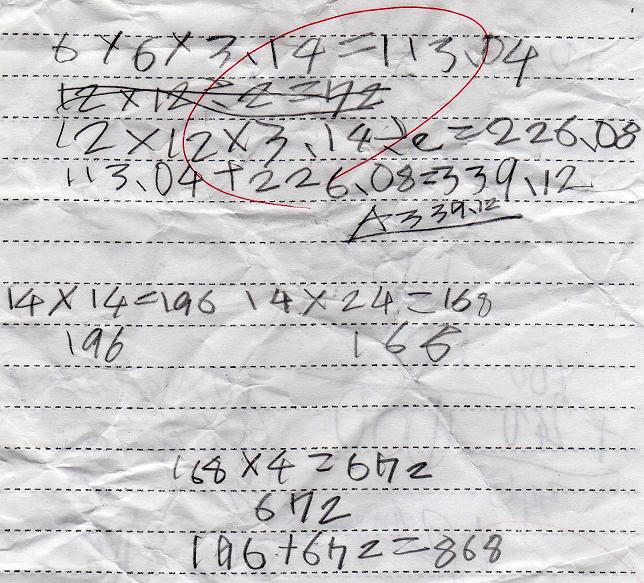 6×6×3.14=113.04
12×12÷2=72
12×12×3.14÷2=226.08
113.04+226.08=339.12
A339.12
14×14=196 14×24=168
196 168
168×4=672
672
196+672=868